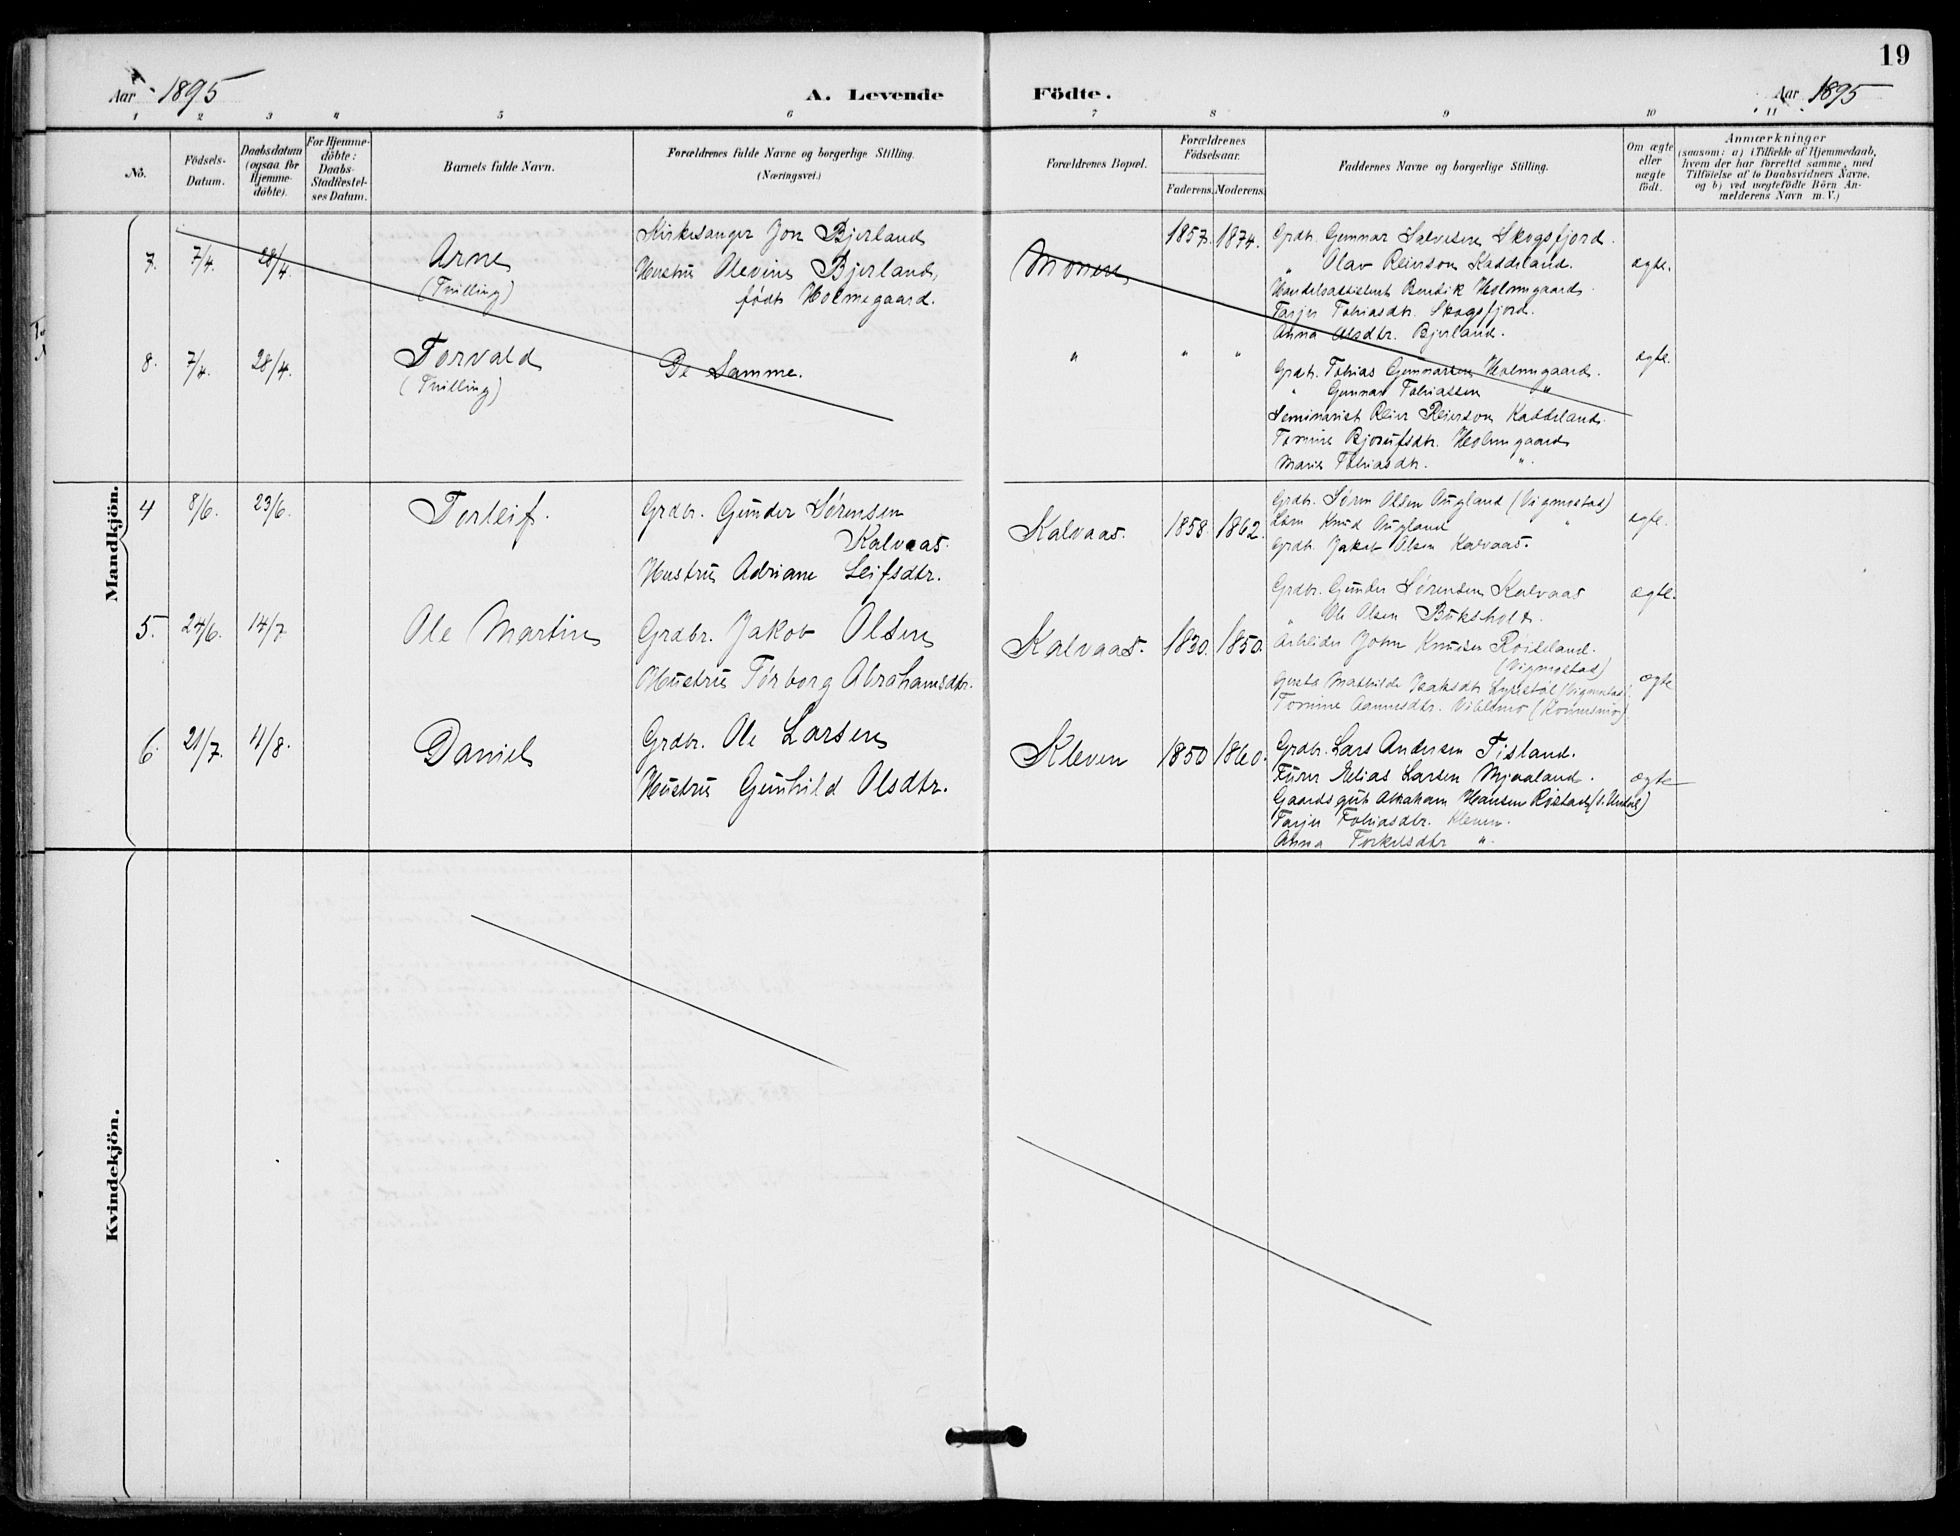 19
Aar 1895 A. Levende Födte. Aar 1895
1 2 3 4 5 6 7 8 9 10 11
No.
Födsels-
Datum.
Daabsdatum
(ogsaa for
Hjemme-
döbte).
For Hjemme-
döbte:
Daabs-
Stadfæstel-
ses Datum.
Barnets fulde Navn.
Forældrenes fulde Navne og borgerlige Stilling.
(Næringsvei.)
Forældrenes Bopæl.
Forældrenes
Födselsaar.
Faderens. Moderens.
Faddernes Navne og borgerlige Stilling.
Om ægte
eller
uægte
födt.
Anmærkninger
(saasom: a) i Tilfælde af Hjemmedaab,
hvem der har forrettet samme, med
Tilföielse af to Daabsvidners Navne,
og b) ved uægtefödte Börn An-
melderens Navn m. V.)
Mandkjön.
7. 7/4. 28/4. Arne
(Tvilling)
Kirkesanger Jon Bjerland
Hustru Olevine Bjerland,
født Holmegaard.
1857. 1874.
Grdb. Gunnar Salvesen Skogsfjord.
" Olav Reierson Kaddeland.
Handelsbetjent Bendik Holmgaard.
Tarjer Tobiasdtr. Skogsfjord.
Anna Olsdtr. Bjerland.
ægte.
8. 7/4. 28/4. Torvald
(Tvilling)
De Samme.
" " "
Grdb. Tobias Gunnarsen Holmgaard.
" Gunnar Tobiassen "
Seminarist Reier Reierson Kaddeland.
Tomine Bjorufsdtr. Holmgaard
Marie Tobiasdtr. ".
ægte.
4 8/6. 23/6. Torleif.
Grdbr. Gunder Sørensen
Kalvaas.
Hustru Adriane Leifsdtr.
Kalvaas. 1858. 1862.
Grdbr. Søren Olsen Augland (Vigmostad)
Knud Augland "
Grdb. Jakob Olsen Kalvaas.
ægte.
5. 24/6. 14/7 Ole Martin
Grdbr. Jakob Olsen
Hustru Torborg Abrahamsdtr.
Kalvaas. 1830. 1850.
Grdbr. Gunder Sørensen Kalvaas
" Ole Olsen Buksholt.
Arbeider John Knudsen Røiseland.
(Vigmostad)
Mathilde Isaksdtr. (Vigmostad).
Tomine Aanensdtr.
ægte.
ægte
6. 21/7. 4/8. Daniel
Grdbr. Ole Larsen
Hustru Gunhild Olsdtr.
Kleven 1850 1860.
Grdbr. Lars Andersen Tisland.
Furer Elias Larsen Mjaaland.
Gaardsgut Abraham Hansen Røstad
Tarjer Tobiasdtr. Kleven.
Anna Torkelsdtr ".
ægte
Kvindekjön.